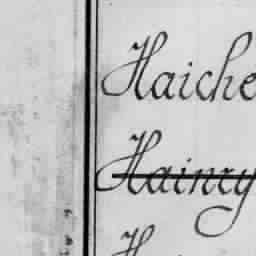 Haiche
Hainry